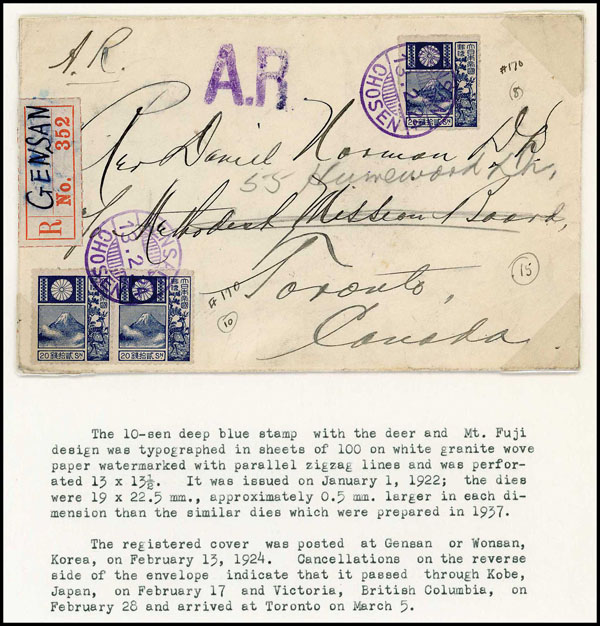 A.R.
A.R
#170
(8)
GENSAN
R No. 352
13.2
CHOSEN
大日本帝國郵便
20 錢拾貳 Sn
Rev Daniel Norman D.D.
55 Humewood Dr.
of Methodist Mission Board,
Toronto,
Canada
15
#170
10
GENSAN
13.2.24
CHOSEN
大日本帝國郵便
20 錢拾貳 Sn
大日本帝國郵便
20 錢拾貳 Sn
The 10-sen deep blue stamp with the deer and Mt. Fuji
design was typographed in sheets of 100 on white granite wove
paper watermarked with parallel zigzag lines and was perfor-
ated 13 x 13½. It was issued on January 1, 1922; the dies
were 19 x 22.5 mm., approximately 0.5 mm. larger in each di-
mension than the similar dies which were prepared in 1937.
The registered cover was posted at Gensan or Wonsan,
Korea, on February 13, 1924. Cancellations on the reverse
side of the envelope indicate that it passed through Kobe,
Japan, on February 17 and Victoria, British Columbia, on
February 28 and arrived at Toronto on March 5.